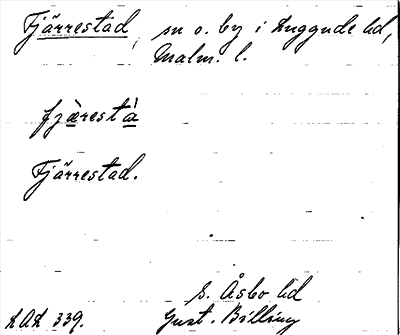 Fjärrestad, sn o. by i Luggude hd,
Malm. l.
fjä̀restà
Fjärrestad.
S. Åsbo hd
LAL 339. Gust. Billing